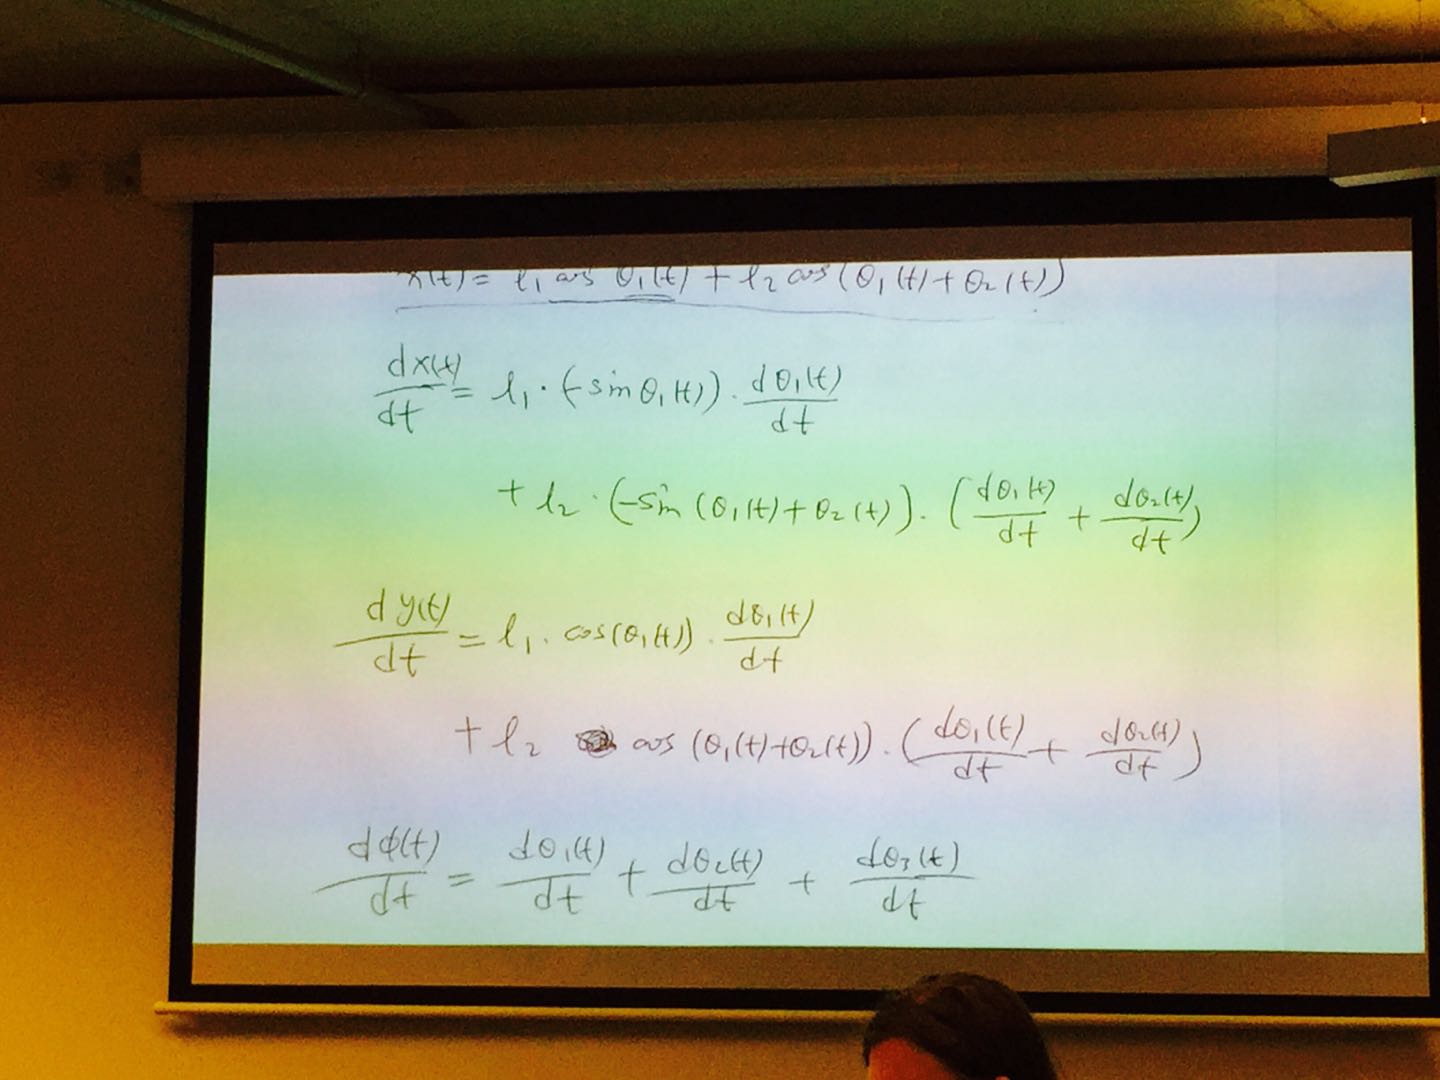 x(t) = l₁ cos θ₁(t) + l₂ cos (θ₁(t) + θ₂(t))
dx(t)/dt = l₁ · (-sin θ₁(t)) · dθ₁(t)/dt
+ l₂ · (-sin (θ₁(t) + θ₂(t)) · (dθ₁(t)/dt + dθ₂(t)/dt)
dy(t)/dt = l₁ · cos(θ₁(t)) · dθ₁(t)/dt
+ l₂ cos (θ₁(t) + θ₂(t)) · (dθ₁(t)/dt + dθ₂(t)/dt)
dϕ(t)/dt = dθ₁(t)/dt + dθ₂(t)/dt + dθ₃(t)/dt